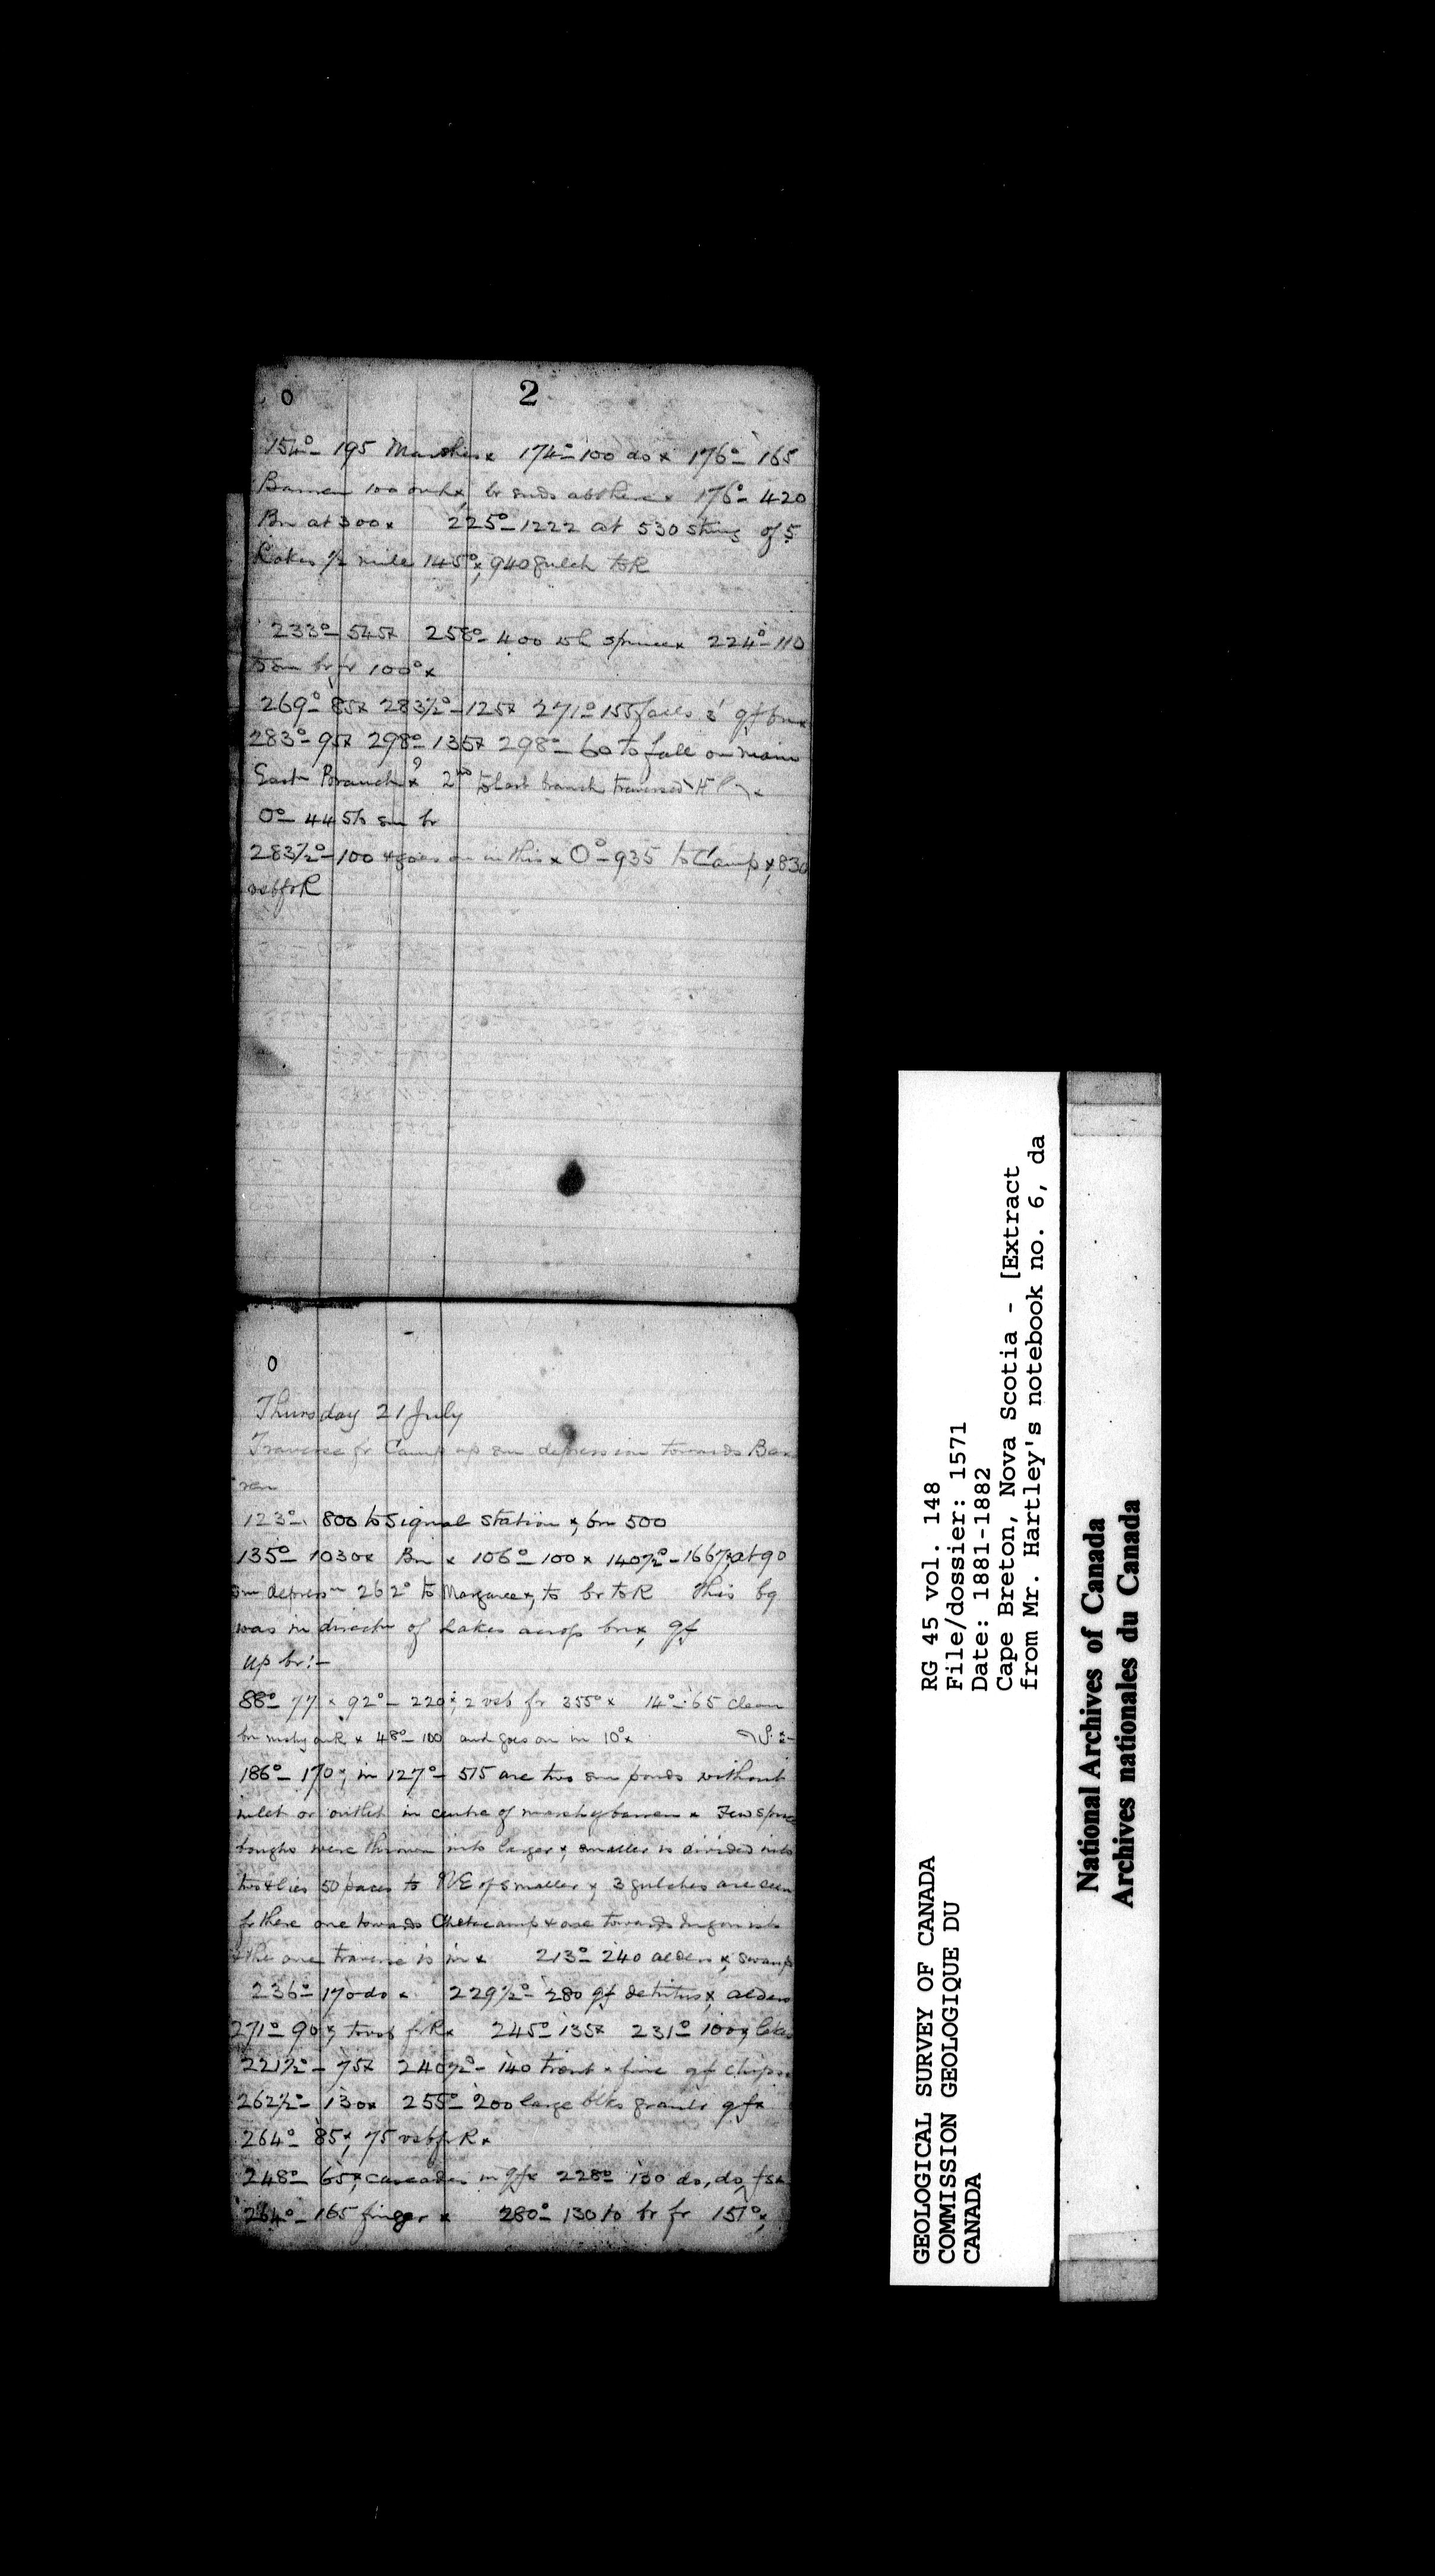 0 2
154° - 195 Marshes x 174° - 100 do x 176° - 165
Barren 100 br ends x 176° - 420
Bn at 300 x 225° - 1222 at 530 string of 5
Lakes 1/2 mile 145° x, 940 gulch to R
233° - 545 x 258° - 400 wh spruce x 224° - 110
to sm br fr 100° x
269° - 85 x 283½° - 125 x 271° - 155 falls 3' gf bn x
283° - 95 x 298° - 135 x 298° - 60 to fall on main
East Branch x ? 2nd to last branch traversed
0° - 445 to sm br
283½° - 100 x goes on in this x 0° - 935 to Camp x, 830
vsb fr R
0
Thursday 21 July
Traverse fr Camp up sm depression towards Bar
ren
123° - 800 to Signal Station x, bn 500
135° - 1030 x Bn x 106° - 100 x 140½° - 1667 x, at 90
sm depressn 262° to Margaree x, to br to R this bg
was in directn of Lakes across bn x, gf
up br:-
88° - 77 x 92° - 220 x, 2 vsb fr 355° x 14° - 65 clean
bn x 48° - 100 and goes on in 10° x
186° - 170 x, in 127° - 515 are two sm ponds without
inlet or outlet in centre of marshy barren x Few spruce
boughs were thrown into larger x, smaller is divided into
two x lies 50 paces to NE of smaller x, 3 gulches are seen
fr there one towards Chetecamp x one towards
x the one traverse is in x 213° - 240 alders x, swamp
236° - 170 do x 229½° - 280 gf detritus x, alders
271° - 90 x, to vsb fr R x 245° - 135 x 231° - 100 x,
221½° - 75 x 240½° - 140 trout x fine gf chips x
262½° - 130 x 255° - 200 large blks granite gf x
264° - 85 x, 75 vsb fr R x
248° - 65 x, cascades in gf x 228° - 130 do, do
264° - 165 finger x 280° - 130 to br fr 151° x,
GEOLOGICAL SURVEY OF CANADA
COMMISSION GEOLOGIQUE DU
CANADA
RG 45 vol. 148
File/dossier: 1571
Date: 1881-1882
Cape Breton, Nova Scotia - [Extract
from Mr. Hartley's notebook no. 6, da
National Archives of Canada
Archives nationales du Canada